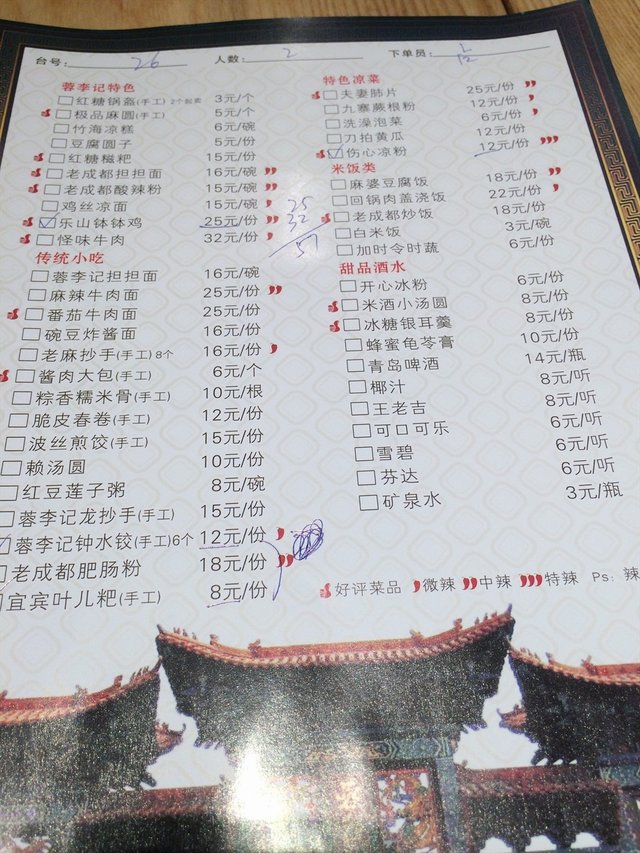 台号: 26 人数: 2 下单员:
蓉李记特色
红糖锅盔(手工) 2个起卖 3元/个
极品麻圆(手工) 5元/个
竹海凉糕 6元/碗
豆腐圆子 5元/份
红糖糍粑 15元/份
老成都担担面 16元/碗
老成都酸辣粉 15元/碗
鸡丝凉面 15元/碗
乐山钵钵鸡 25元/份
怪味牛肉 32元/份
25
32
57
传统小吃
蓉李记担担面 16元/碗
麻辣牛肉面 25元/份
番茄牛肉面 25元/份
碗豆炸酱面 16元/份
老麻抄手(手工) 8个 16元/份
酱肉大包(手工) 6元/个
粽香糯米骨(手工) 10元/根
脆皮春卷(手工) 12元/份
波丝煎饺(手工) 15元/份
赖汤圆 10元/份
红豆莲子粥 8元/碗
蓉李记龙抄手(手工) 15元/份
蓉李记钟水饺(手工)6个 12元/份
老成都肥肠粉 18元/份
宜宾叶儿粑(手工) 8元/份
特色凉菜
夫妻肺片 25元/份
九寨蕨根粉 12元/份
洗澡泡菜 6元/份
刀拍黄瓜 12元/份
伤心凉粉 12元/份
米饭类
麻婆豆腐饭 18元/份
回锅肉盖浇饭 22元/份
老成都炒饭 18元/份
白米饭 3元/碗
加时令时蔬 6元/份
甜品酒水
开心冰粉 6元/份
米酒小汤圆 8元/份
冰糖银耳羹 8元/份
蜂蜜龟苓膏 10元/份
青岛啤酒 14元/瓶
椰汁 8元/听
王老吉 8元/听
可口可乐 6元/听
雪碧 6元/听
芬达 6元/听
矿泉水 3元/瓶
好评菜品 微辣 中辣 特辣 Ps: 辣